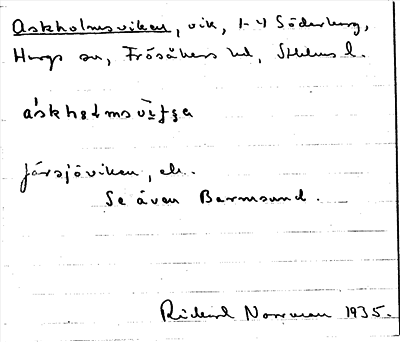 Askholmsviken, vik, 1-4 Söderberg,
Hargs sn, Frösåkers hd, Sthlms l.
Järsjöviken, ek.
Se även Barmsund.
Rickard Norrman 1935.